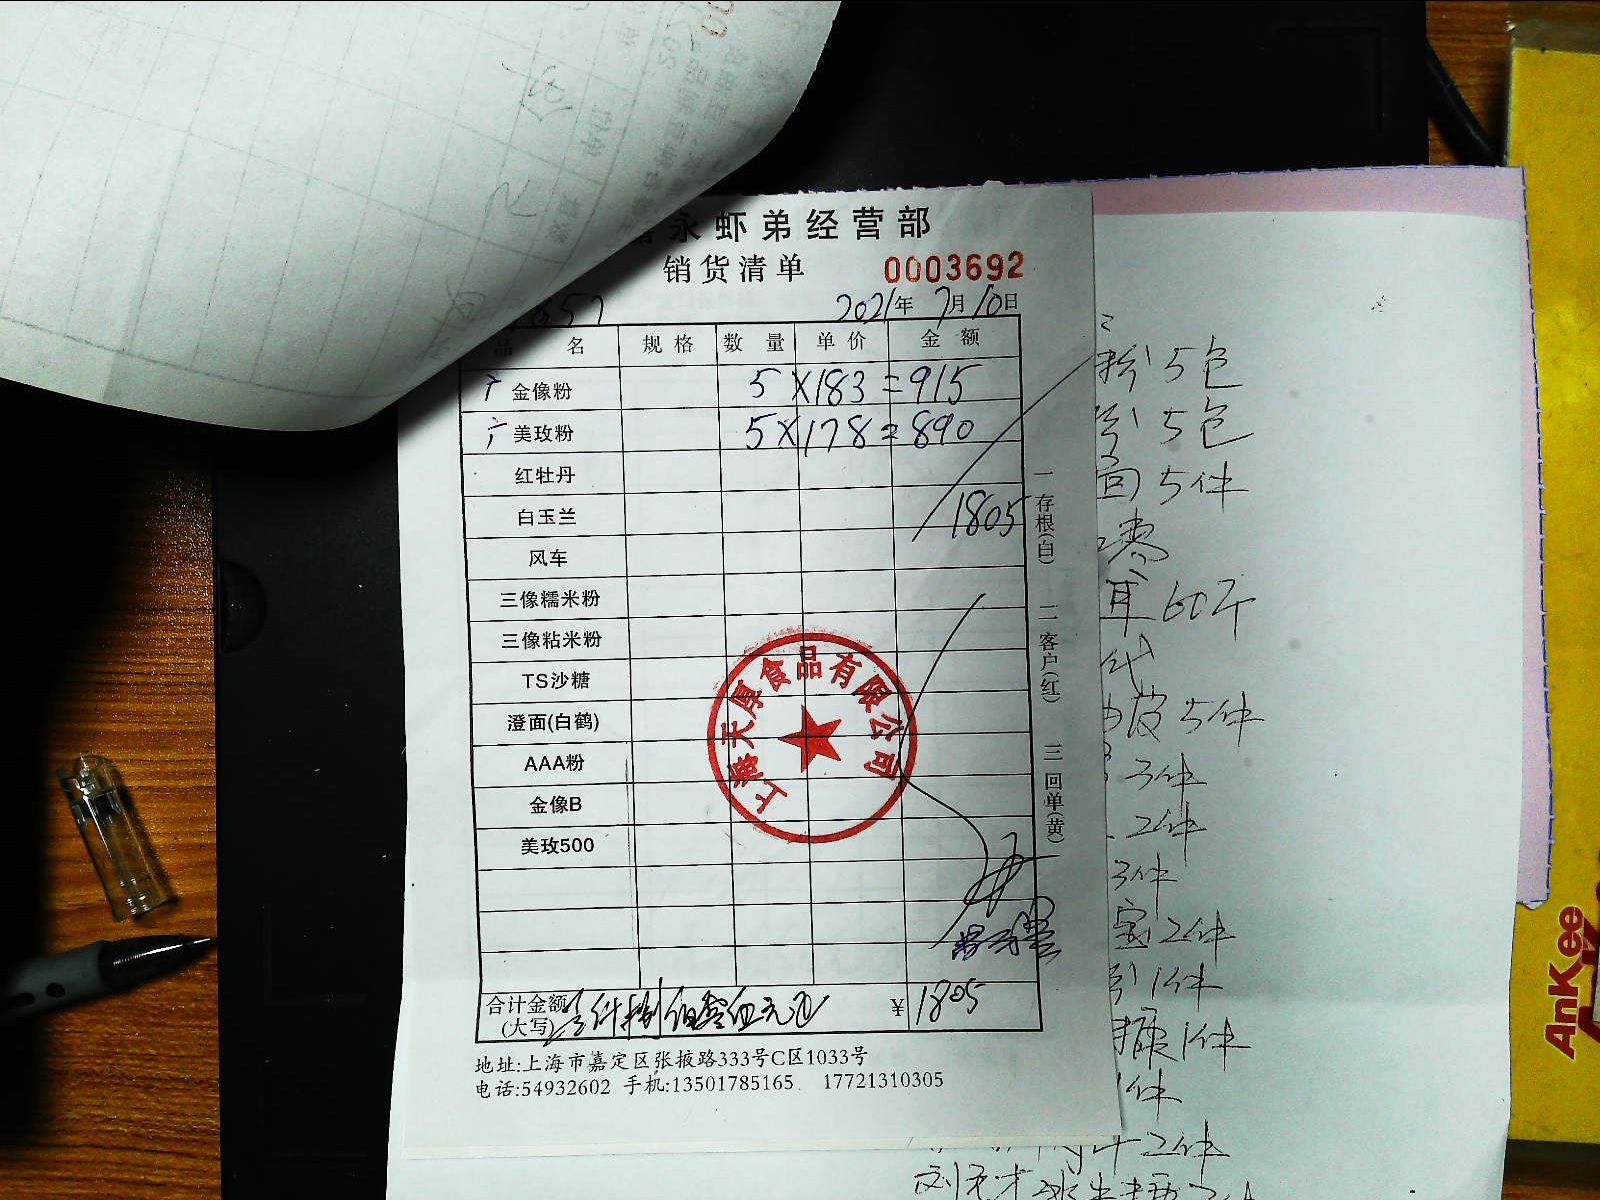 永虾弟经营部
销货清单 0003692
657 2021年7月10日
品名 规格 数量 单价 金额
金像粉 5×183=915
美玫粉 5×178=890
红牡丹
白玉兰 1805
风车
三像糯米粉
三像粘米粉
TS沙糖
澄面(白鹤)
AAA粉
金像B
美玫500
合计金额(大写) 仟捌佰零伍元 ¥1805
地址:上海市嘉定区张掖路333号C区1033号
电话:54932602 手机:13501785165. 17721310305
一存根(白) 二客户(红) 三回单(黄)
上海天厚食品有限公司
粉 5包
5包
面 5件
枣
耳 60斤
代
皮 5件
3件
2件
3件
宝 2件
1件
糖 1件
1件
2件
AnKee